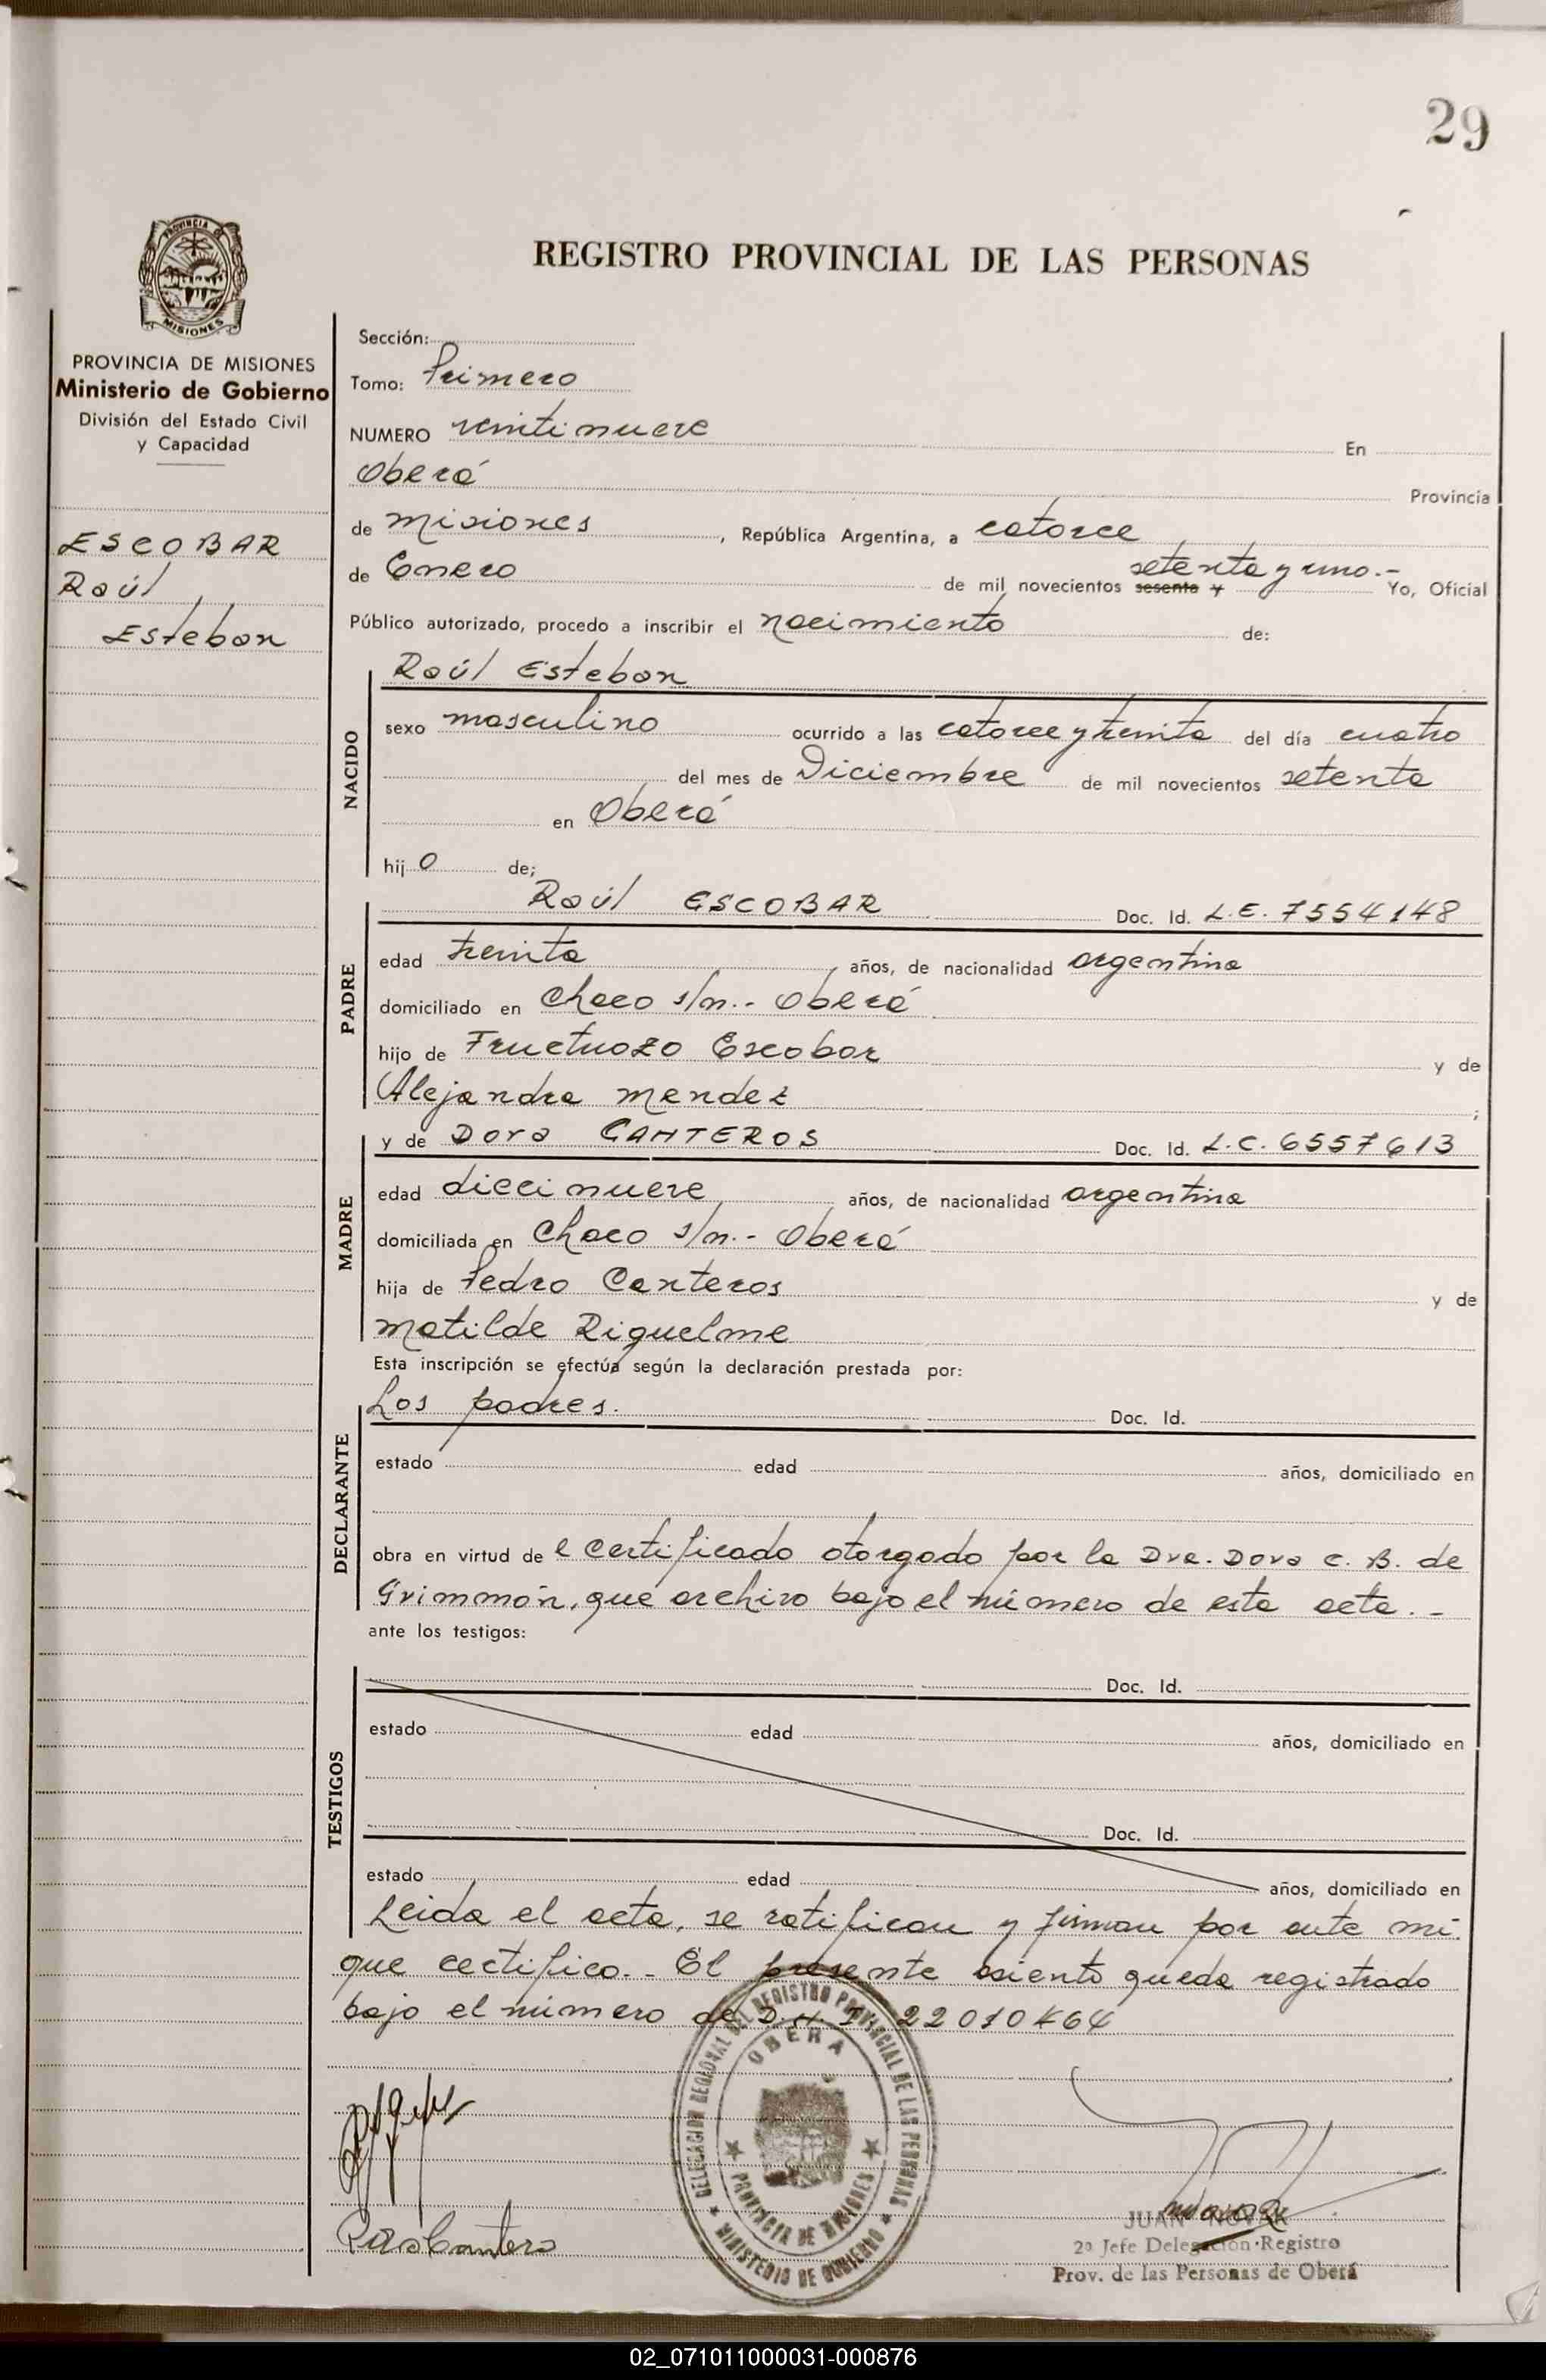 29
REGISTRO PROVINCIAL DE LAS PERSONAS
PROVINCIA DE MISIONES
Ministerio de Gobierno
División del Estado Civil
y Capacidad
ESCOBAR
Raúl
Esteban
Sección:
Tomo: Primero
NUMERO veintinueve En
Oberá Provincia
de Misiones, República Argentina, a catorce
de Enero de mil novecientos sesenta y setenta y uno.- Yo, Oficial
Público autorizado, procedo a inscribir el nacimiento de:
NACIDO
Raúl Esteban
sexo masculino ocurrido a las catorce y treinta del día cuatro
del mes de Diciembre de mil novecientos setenta
en Oberá
hijo de;
PADRE
Raúl ESCOBAR Doc. Id. L.E. 7554148
edad treinta años, de nacionalidad argentina
domiciliado en Chaco s/n.- Oberá
hijo de Fructuozo Escobar y de
Alejandra Mendez;
MADRE
y de Dora CANTEROS Doc. Id. L.C. 6557613
edad diecinueve años, de nacionalidad argentina
domiciliada en Chaco s/n.- Oberá
hija de Pedro Canteros y de
Matilde Riquelme
Esta inscripción se efectúa según la declaración prestada por:
DECLARANTE
Los padres. Doc. Id.
estado edad años, domiciliado en
obra en virtud del certificado otorgado por la Dra. Dora C. B. de
Grimmón, que archivo bajo el número de esta acta.-
ante los testigos:
TESTIGOS
Doc. Id.
estado edad años, domiciliado en
Doc. Id.
estado edad años, domiciliado en
Leida el acta, se ratifican y firman por ante mí
que certifico.- El presente asiento queda registrado
bajo el número de D.N.I. 22010464
DELEGACION REGIONAL DEL REGISTRO PROVINCIAL DE LAS PERSONAS
OBERA
PROVINCIA DE MISIONES
MINISTERIO DE GOBIERNO
JUAN NOVAK
2º Jefe Delegación Registro
Prov. de las Personas de Oberá
02_071011000031-000876